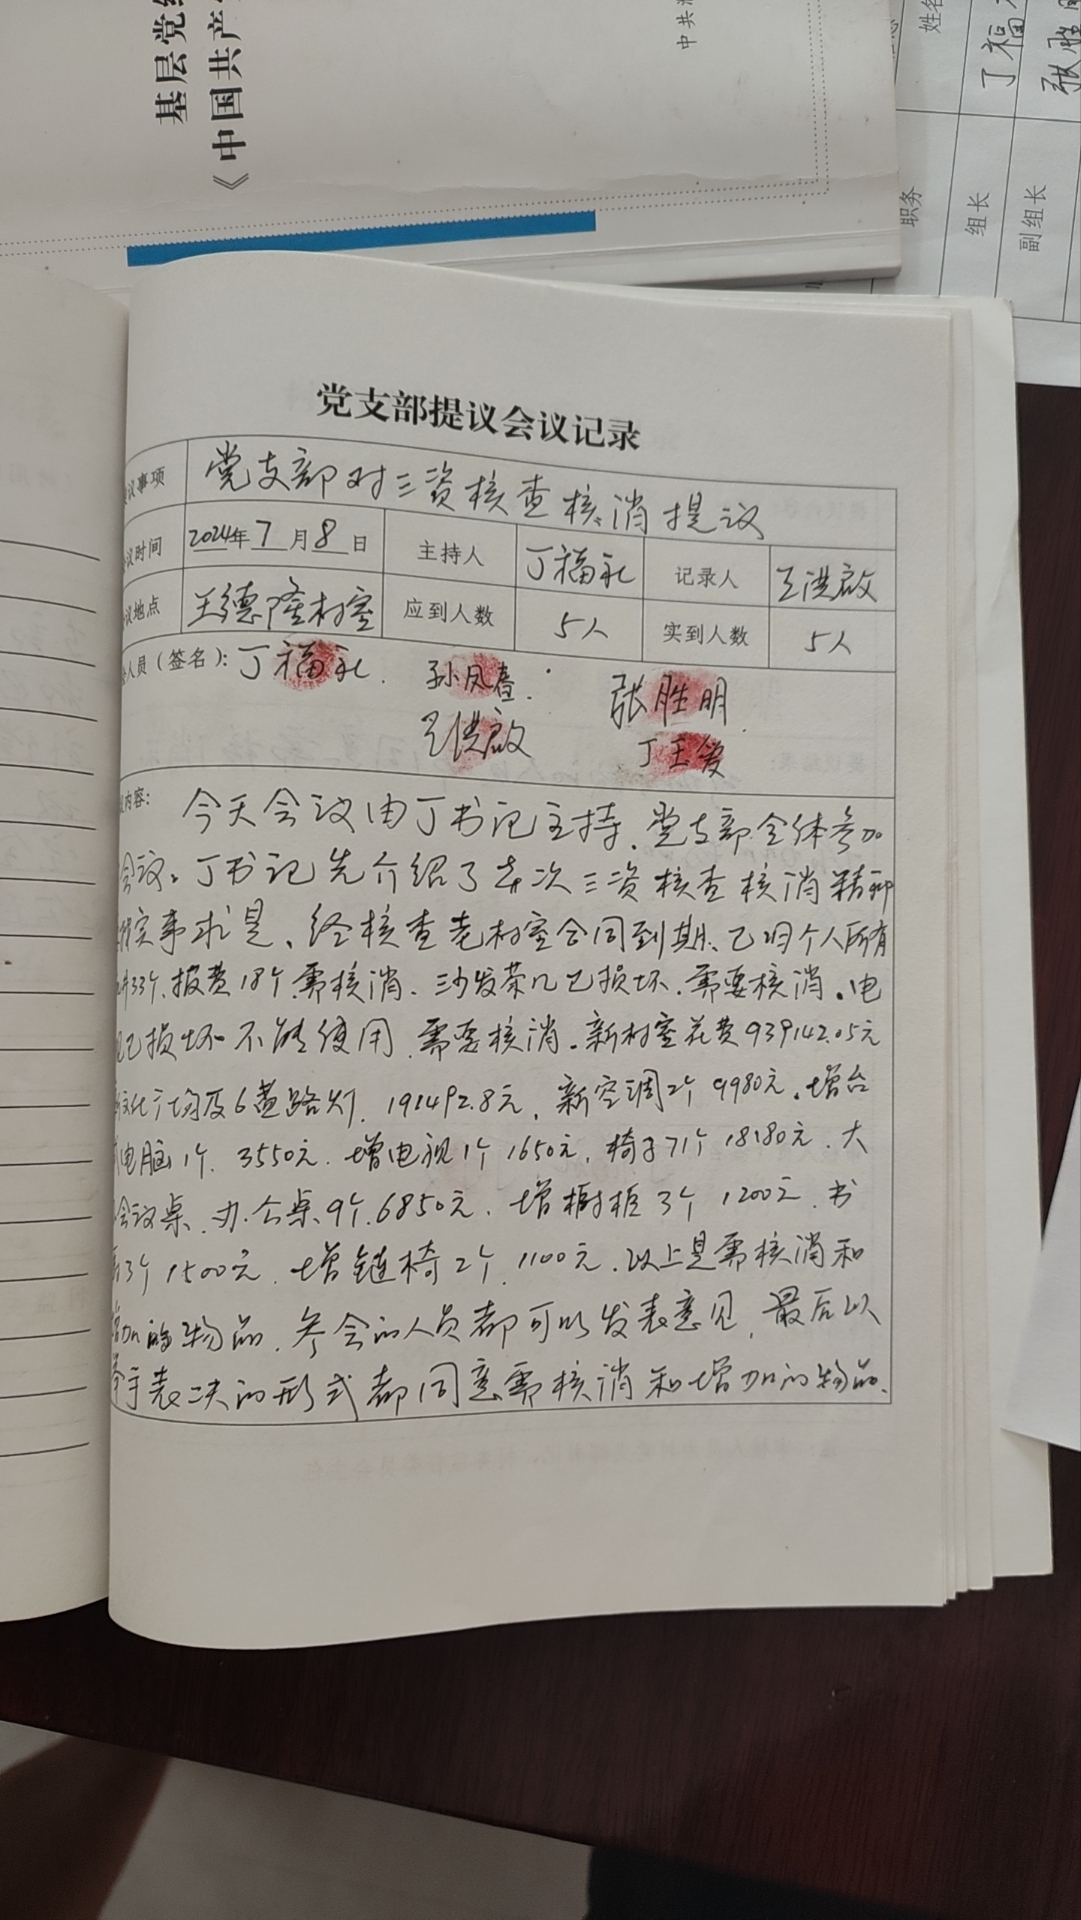 基层党组
《中国共产
中共
姓名
丁福
张胜明
职务
组长
副组长
党支部提议会议记录
议事项
党支部对三资核查核消提议
议时间
2024年7月8日
主持人
丁福礼
记录人
王洪啟
议地点
王德隆村室
应到人数
5人
实到人数
5人
人员(签名):丁福礼.
孙凤春.
张胜明
王洪啟
丁玉爱
内容:
今天会议由丁书记主持.党支部全体参加
会议。丁书记先介绍了本次三资核查核消精神
实事求是、经核查老村室合同到期、已归个人所有
33个,报费18个需核消、沙发茶几已损坏.需要核消。电
已损坏不能使用.需要核消。新村室花费939142.05元
文化广场及6盏路灯.191492.8元,新空调2个9980元.增台
电脑1个.3550元.增电视1个1650元,椅子71个18180元.大
会议桌.办公桌9个.6850元.增橱柜3个1200元.书
3个1500元.增链椅2个.1100元.以上是需核消和
增加的物品.参会的人员都可以发表意见.最后以
举手表决的形式都同意需核消和增加的物品.